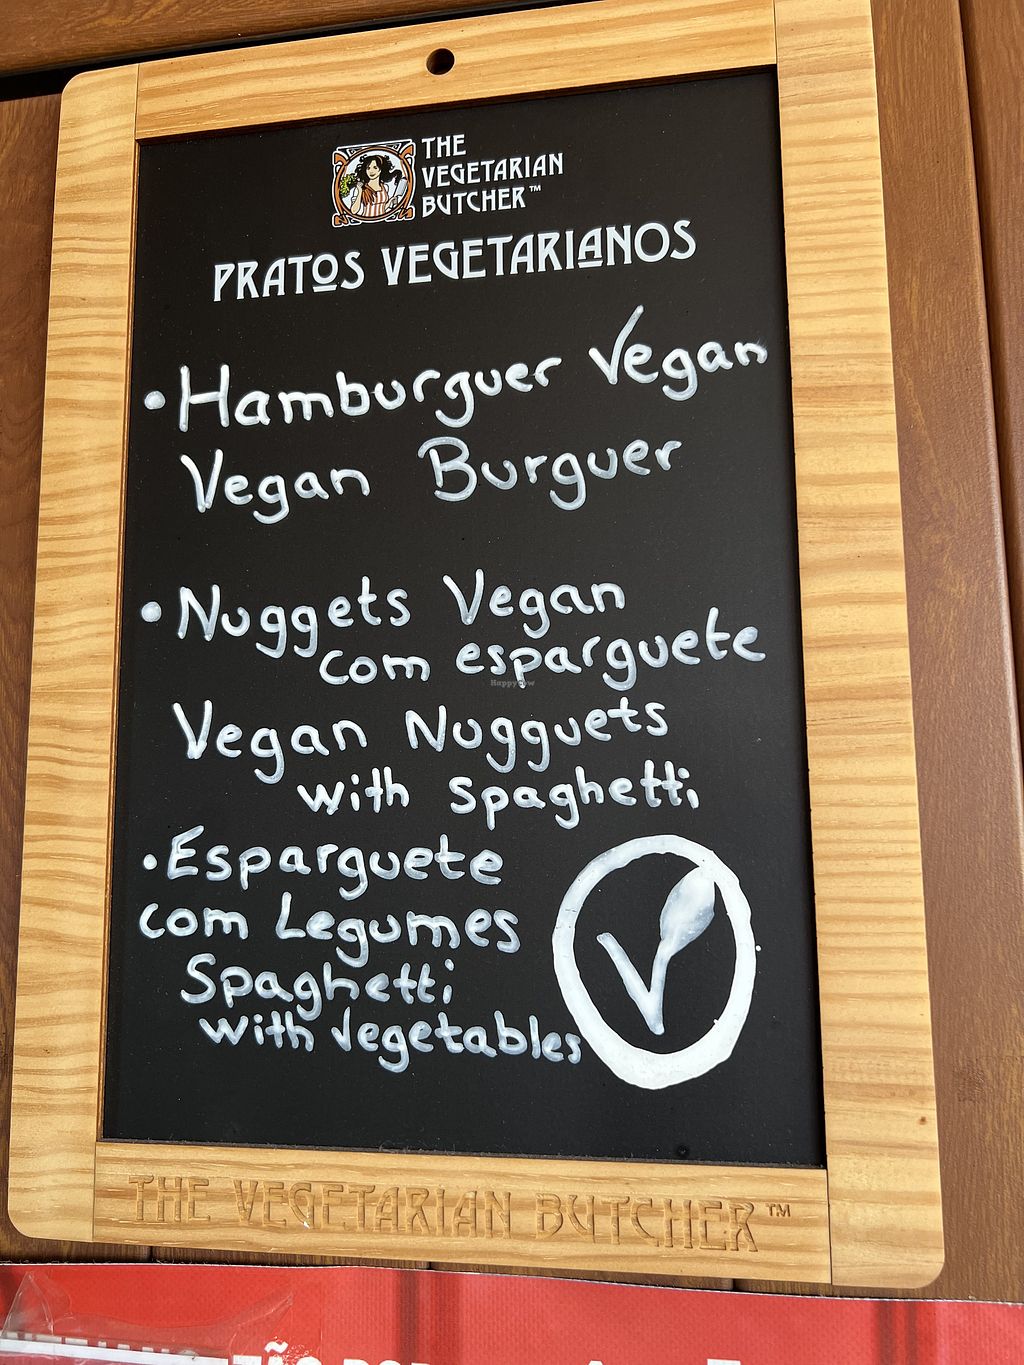 THE
VEGETARIAN
BUTCHER™
PRATOS VEGETARIANOS
• Hamburguer Vegan
Vegan Burguer
• Nuggets Vegan
com esparguete
HappyCow
Vegan Nugguets
with spaghetti
• Esparguete
com Legumes
Spaghetti
with vegetables
V
THE VEGETARIAN BUTCHER™